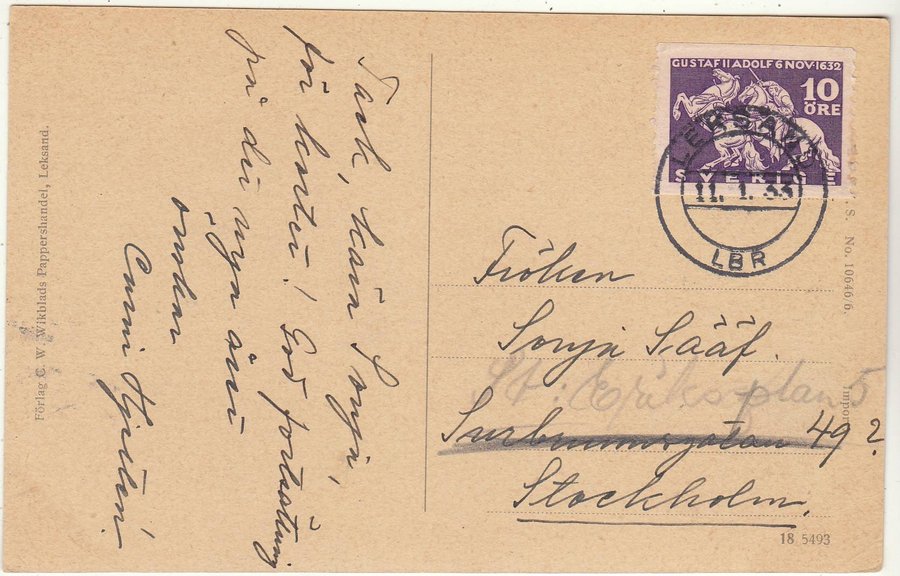 Tack, kära Sonja,
för kortet! God fortsättning
på det nya året
önskar
GUSTAF II ADOLF 6 NOV. 1632
10
ÖRE
SVERIGE
LEKSAND
11. 1. 33
LBR
Fröken
Sonja Sääf.
St: Eriksplan 5
Surbrunnsgatan 49?
Stockholm.
Förlag C. W. Wikblads Pappershandel, Leksand.
S. No. 10646/6.
Impor
18 5493